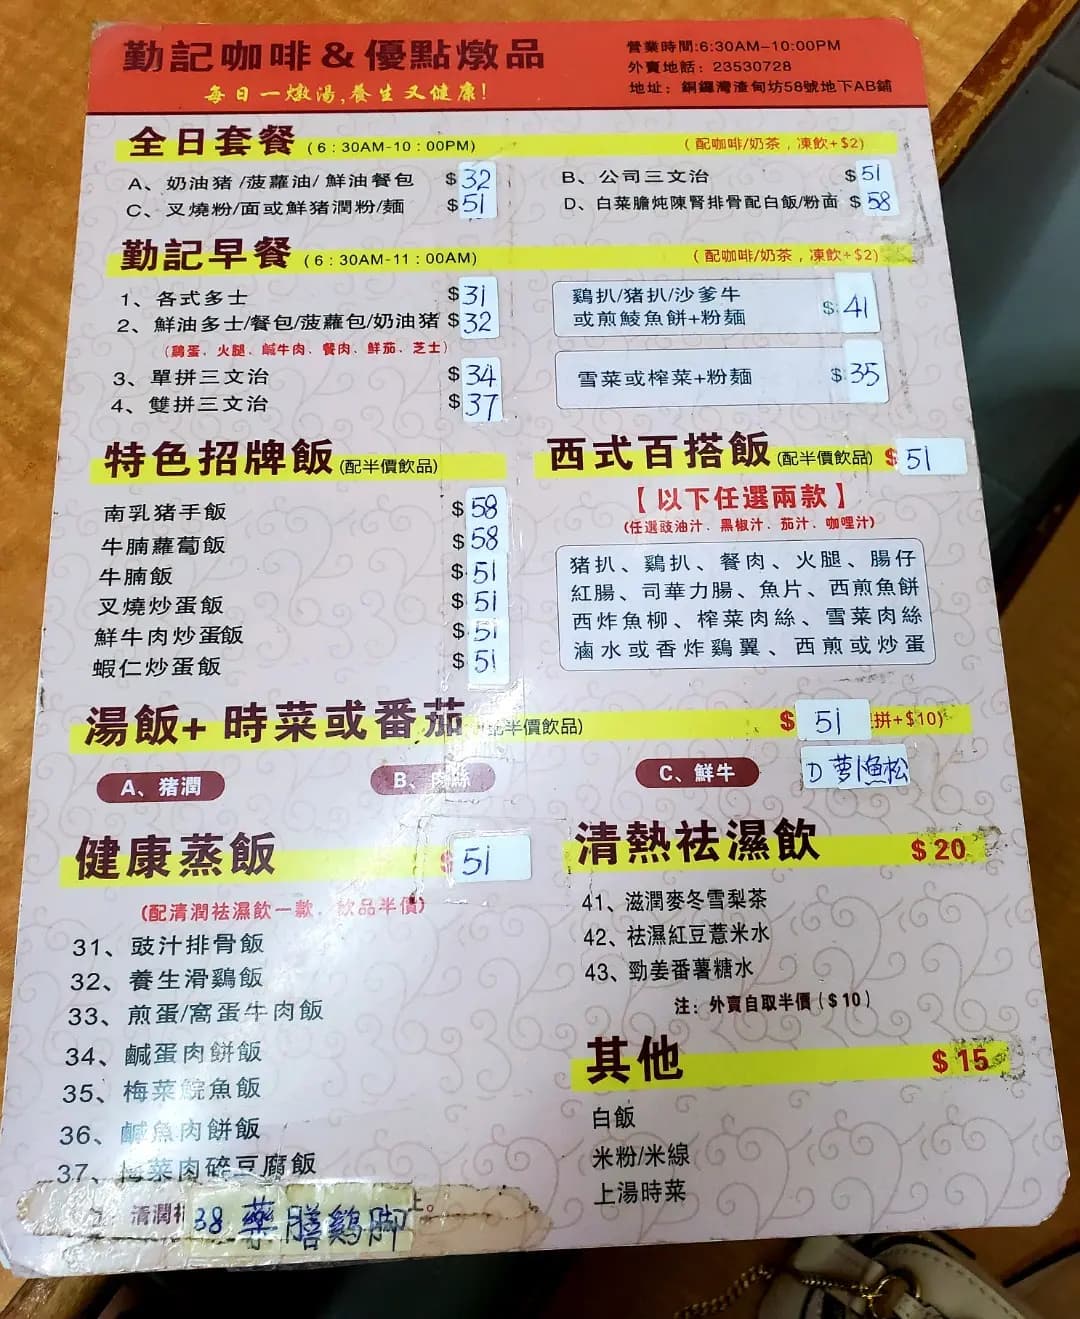 勤記咖啡&優點燉品
每日一燉湯,養生又健康!
營業時間:6:30AM-10:00PM
外賣地話：23530728
地址：銅鑼灣渣甸坊58號地下AB鋪
全日套餐 (6:30AM-10:00PM) (配咖啡/奶茶，凍飲+$2)
A、奶油猪/菠蘿油/鮮油餐包 $32
B、公司三文治 $51
C、叉燒粉/面或鮮猪潤粉/麵 $51
D、白菜膽炖陳腎排骨配白飯/粉面 $58
勤記早餐 (6:30AM-11:00AM) (配咖啡/奶茶，凍飲+$2)
1、各式多士 $31
2、鮮油多士/餐包/菠蘿包/奶油猪 $32
(鷄蛋．火腿．鹹牛肉．餐肉．鮮茄．芝士)
3、單拼三文治 $34
4、雙拼三文治 $37
鷄扒/猪扒/沙爹牛
或煎鯪魚餅+粉麵 $41
雪菜或榨菜+粉麵 $35
特色招牌飯 (配半價飲品)
南乳猪手飯 $58
牛腩蘿蔔飯 $58
牛腩飯 $51
叉燒炒蛋飯 $51
鮮牛肉炒蛋飯 $51
蝦仁炒蛋飯 $51
西式百搭飯 (配半價飲品) $51
【以下任選兩款】
(任選豉油汁．黑椒汁．茄汁．咖哩汁)
猪扒、鷄扒、餐肉、火腿、腸仔
紅腸、司華力腸、魚片、西煎魚餅
西炸魚柳、榨菜肉絲、雪菜肉絲
滷水或香炸鷄翼、西煎或炒蛋
湯飯+時菜或番茄 配半價飲品) $51 拼+$10)
A、猪潤
B、肉絲
C、鮮牛
D 萝卜魚松
健康蒸飯 $51
(配清潤袪濕飲一款．飲品半價)
31、豉汁排骨飯
32、養生滑鷄飯
33、煎蛋/窩蛋牛肉飯
34、鹹蛋肉餅飯
35、梅菜鯇魚飯
36、鹹魚肉餅飯
37、梅菜肉碎豆腐飯
清潤
38 藥膳鷄脚
清熱袪濕飲 $20
41、滋潤麥冬雪梨茶
42、袪濕紅豆薏米水
43、勁姜番薯糖水
注：外賣自取半價($10)
其他 $15
白飯
米粉/米線
上湯時菜